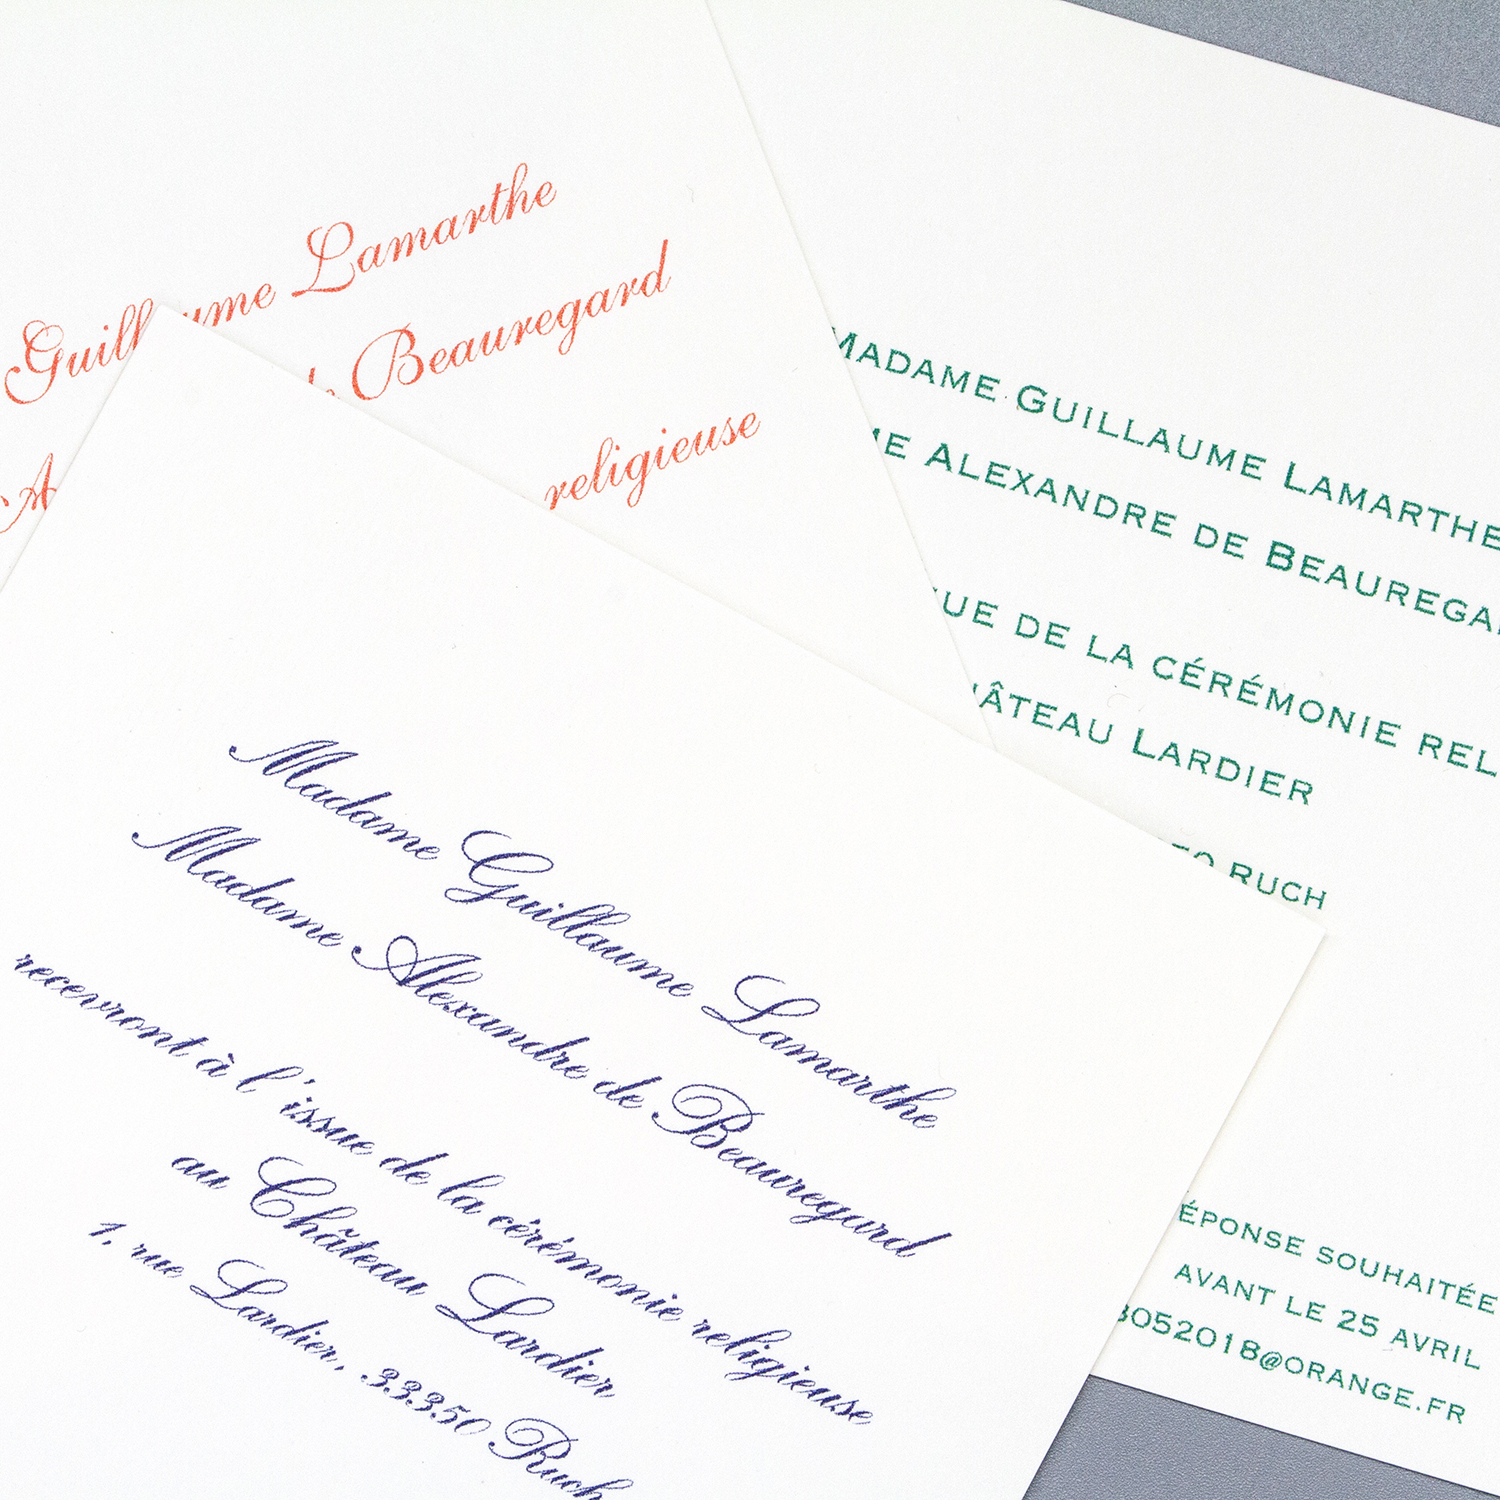 Guillaume Lamarthe
Beauregard
religieuse
MADAME GUILLAUME LAMARTHE
ALEXANDRE DE BEAUREGA
DE LA CÉRÉMONIE REL
ÂTEAU LARDIER
RUCH
ÉPONSE SOUHAITÉE
AVANT LE 25 AVRIL
3052018@ORANGE.FR
Madame Guillaume Lamarthe
Madame Alexandre de Beauregard
recevront à l'issue de la cérémonie religieuse
au Château Lardier
1, rue Lardier, 33350 Ruch